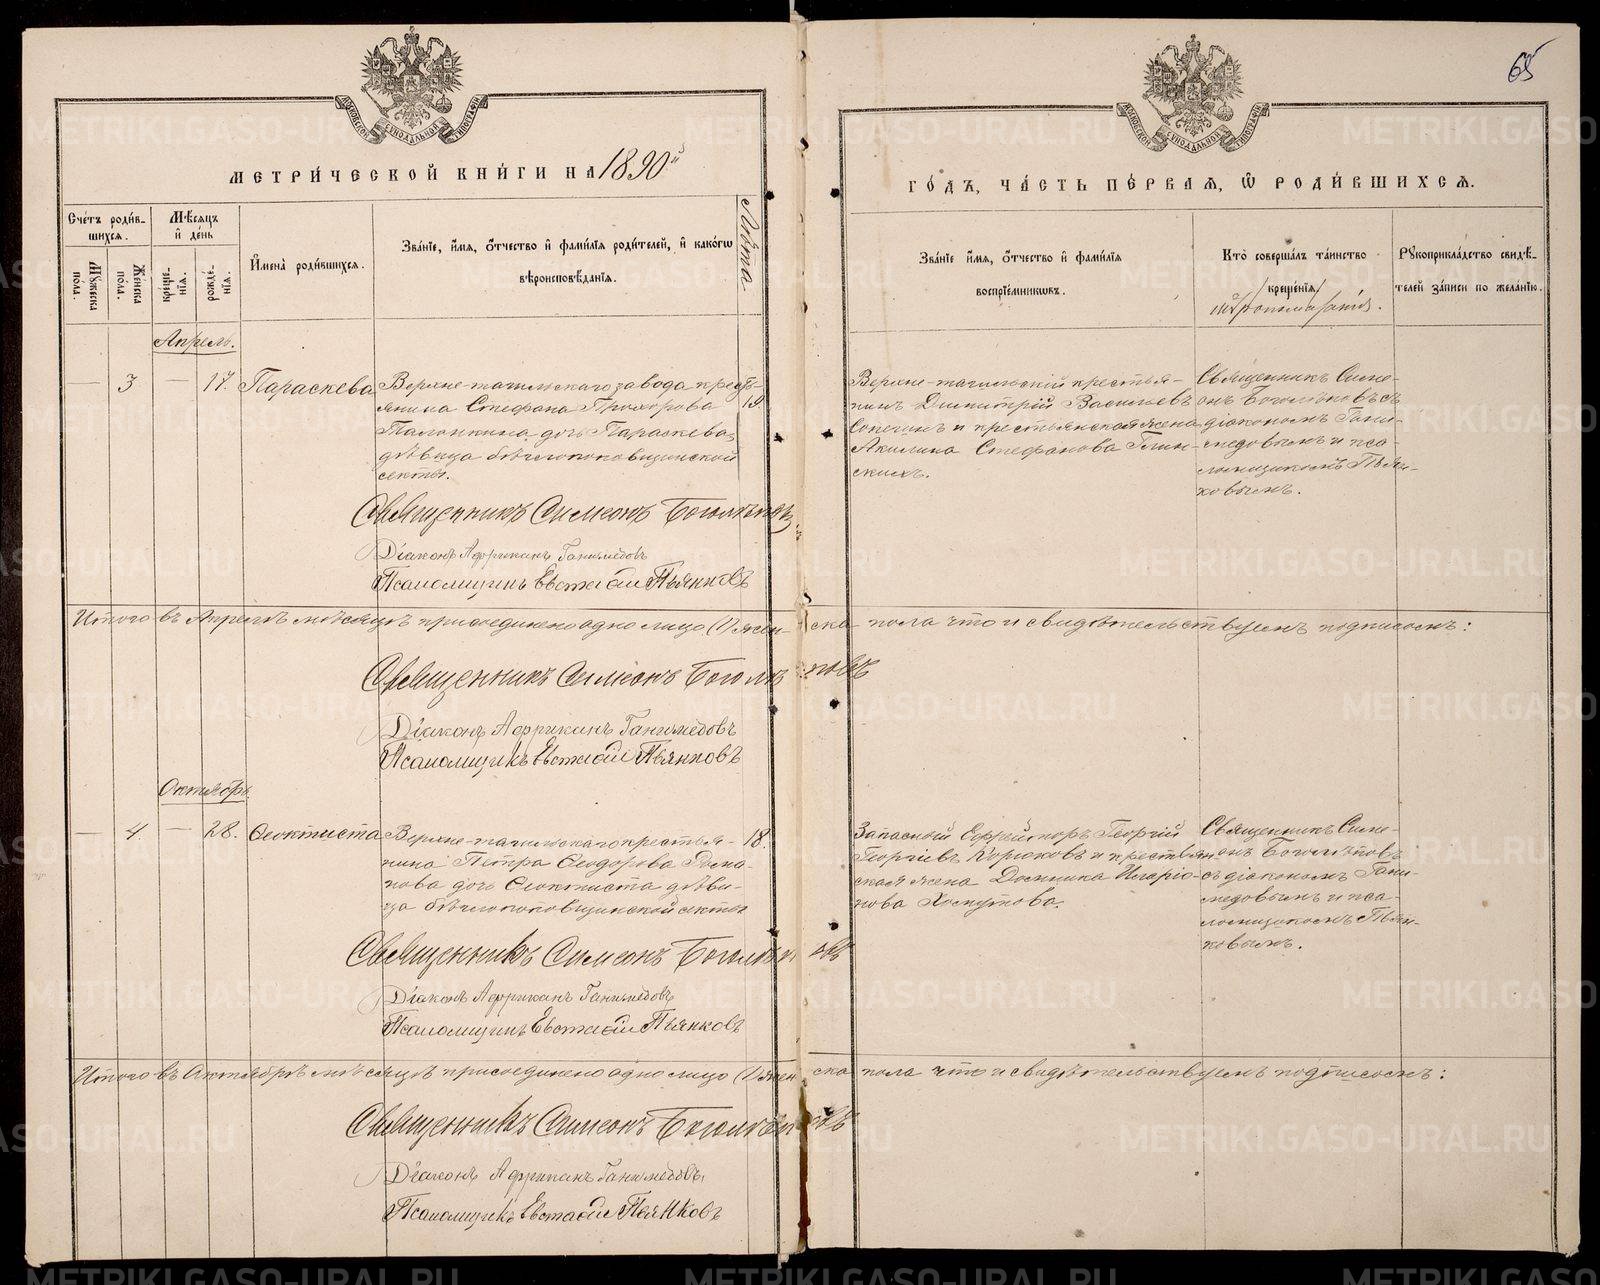 65
МЕТРИ́ЧЕСКОЙ КНИ́ГИ НА 1890й
ГО́ДЪ, ЧА́СТЬ ПЕ́РВАЯ, Ѡ РОДИ́ВШИХСЯ.
Счетъ роди́в-
шихся.
Мужеска пола.
Женска пола.
Мѣсяцъ
и день
креще-
нія.
рожде-
нія.
Имена родившихся.
Званіе, имя, отчество и фамилія родителей, и какогѡ
вѣроисповѣданія.
Лѣта
Званіе имя, отчество и фамилія
воспріемниковъ.
Кто совершалъ таинство
крещенія/
мѵропомазанія.
Рукоприкладство свидѣ-
телей записи по желанію.
Апрель.
— 3 — 17. Параскева
Верхне-тагильскаго завода крестъ-
янина Стефана Прохорова
19.
дочь Параскева,
дѣвица бѣглопоповщинской
секты.
Верхне-тагильскій крестья-
нинъ Димитрій Васильевъ
и крестьянская жена
Акилина Стефанова
Священникъ Симе-
онъ Боголѣповъ съ
діакономъ Гани-
медовымъ и пса-
ломщикомъ Пьян-
ковымъ.
Священникъ Симеонъ Боголѣповъ
Діаконъ Африканъ Ганимедовъ
Псаломщикъ Евстафій Пьянковъ
Итого въ Апрелѣ мѣсяцѣ присоединено одно лицо (1) жен-ска пола что и свидѣтельствуемъ подписомъ:
Священникъ Симеонъ Боголѣповъ
Діаконъ Африканъ Ганимедовъ
Псаломщикъ Евстафій Пьянковъ
Октябрь
— 4. — 28. Ѳеоктиста
Верхне-тагильскаго крестья-
нина Петра Ѳеодорова
18.
дочь Ѳеоктиста дѣви-
ца бѣглопоповщинской секты
Запасный Ефрейторъ Георгій
Георгіевъ Корюковъ и крестьян-
ская жена Домника Иларіо-
нова Хомутова.
Священникъ Симе-
онъ Боголѣповъ
съ діакономъ Гани-
медовымъ и пса-
ломщикомъ Пьян-
ковымъ.
Священникъ Симеонъ Боголѣповъ
Діаконъ Африканъ Ганимедовъ
Псаломщикъ Евстафій Пьянковъ
Итого въ Октябрѣ мѣсяцѣ присоединено одно лицо (1) жен-ска пола что и свидѣтельствуемъ подписомъ:
Священникъ Симеонъ Боголѣповъ
Діаконъ Африканъ Ганимедовъ
Псаломщикъ Евстафій Пьянковъ
METRIKI.GASO-URAL.RU